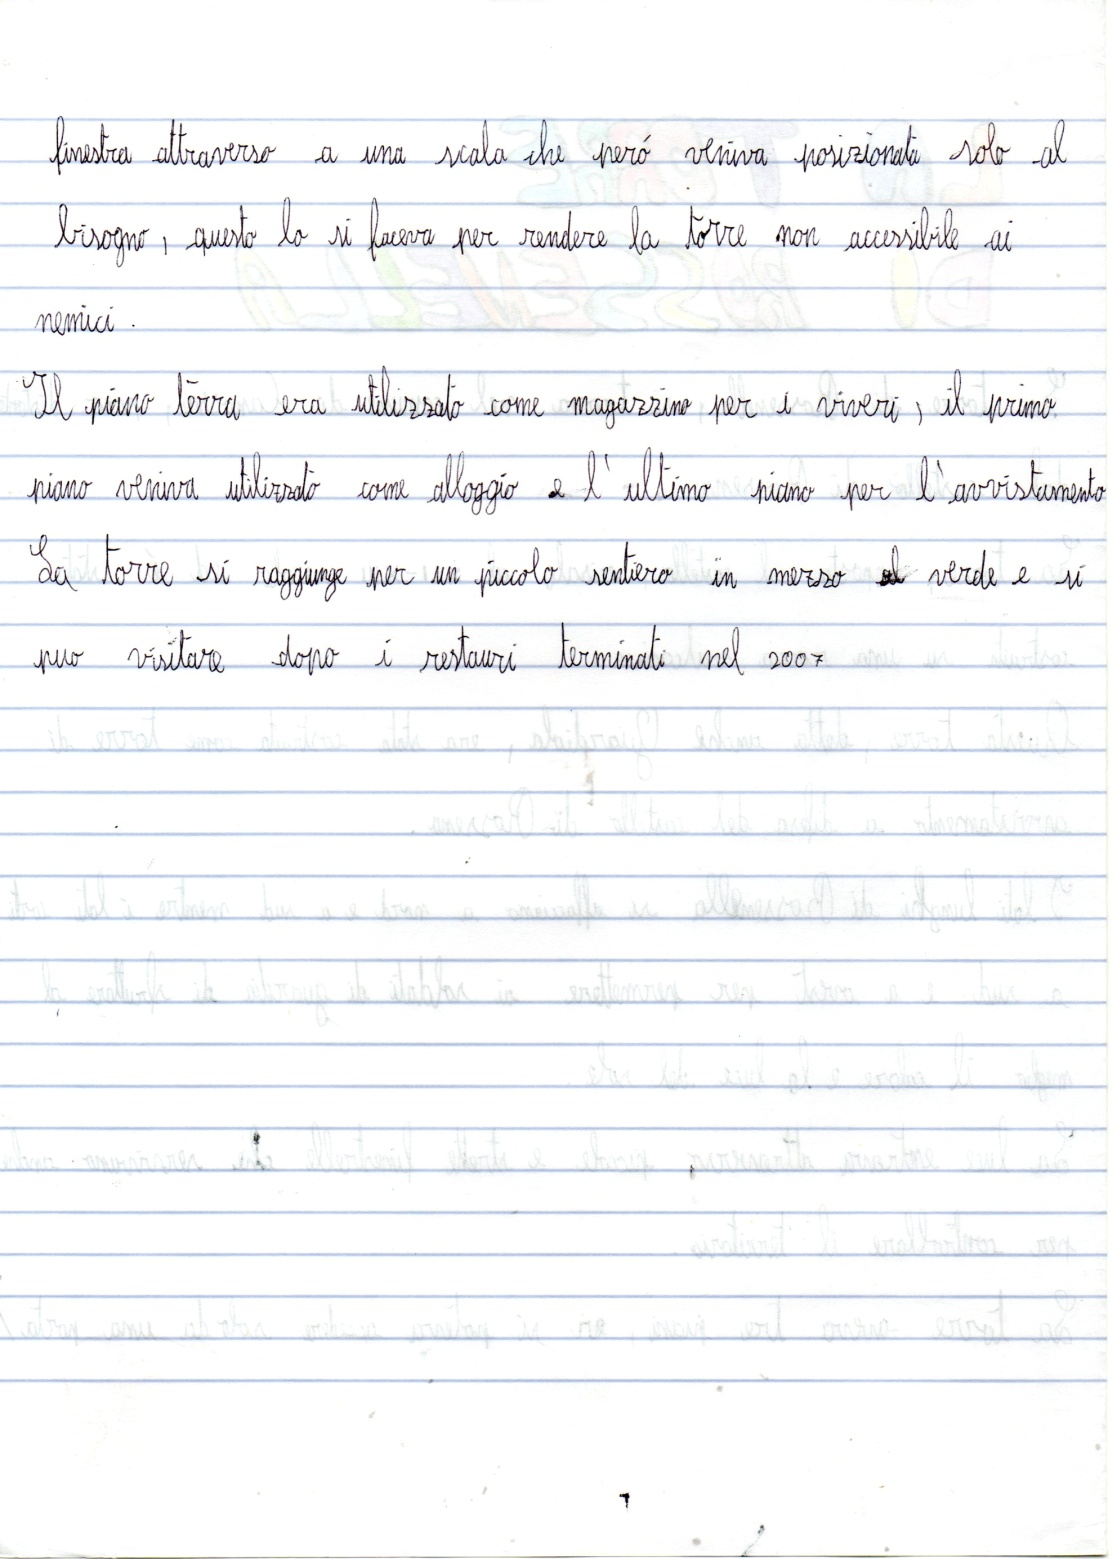 finestra attraverso a una scala che peró veniva posizionata solo al
bisogno, questo lo si faceva per rendere la torre non accessibile ai
nemici.
Il piano terra era utilizzato come magazzino, per i viveri, il primo
piano veniva utilizzato come alloggio e l'ultimo piano per l'avvistamento
La torre si raggiunge per un piccolo sentiero in mezzo al verde e si
puo visitare dopo i restauri terminati nel 2007
7